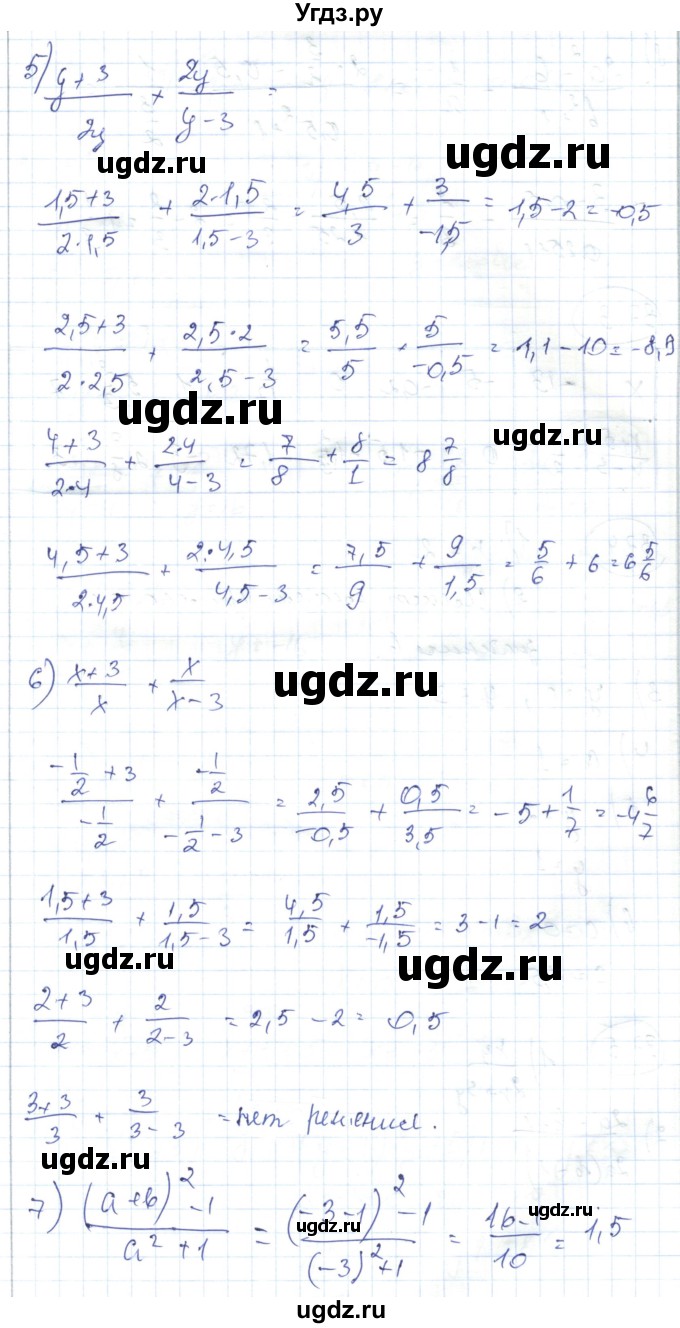 Угдз.ру
5) (y+3)/(2y) + (2y)/(y-3) =
ugdz.ru
ugdz.ru
(1,5+3)/(2·1,5) + (2·1,5)/(1,5-3) = 4,5/3 + 3/(-1,5) = 1,5-2 = -0,5
(2,5+3)/(2·2,5) + (2,5·2)/(2,5-3) = 5,5/5 + 5/(-0,5) = 1,1-10 = -8,9
ugdz.ru
ugdz.ru
(4+3)/(2·4) + (2·4)/(4-3) = 7/8 + 8/1 = 8 7/8
(4,5+3)/(2·4,5) + (2·4,5)/(4,5-3) = 7,5/9 + 9/1,5 = 5/6 + 6 = 6 5/6
6) (x+3)/x + x/(x-3)
ugdz.ru
(-1/2+3)/(-1/2) + (-1/2)/(-1/2-3) = 2,5/(-0,5) + 0,5/3,5 = -5 + 1/7 = -4 6/7
(1,5+3)/1,5 + 1,5/(1,5-3) = 4,5/1,5 + 1,5/(-1,5) = 3-1 = 2
ugdz.ru
ugdz.ru
(2+3)/2 + 2/(2-3) = 2,5-2 = 0,5
(3+3)/3 + 3/(3-3) = нет решения.
ugdz.ru
7) ((a+b)²-1)/(a²+1) = ((-3-1)²-1)/((-3)²+1) = (16-1)/10 = 1,5
ugdz.ru
ugdz.ru
ugdz.ru